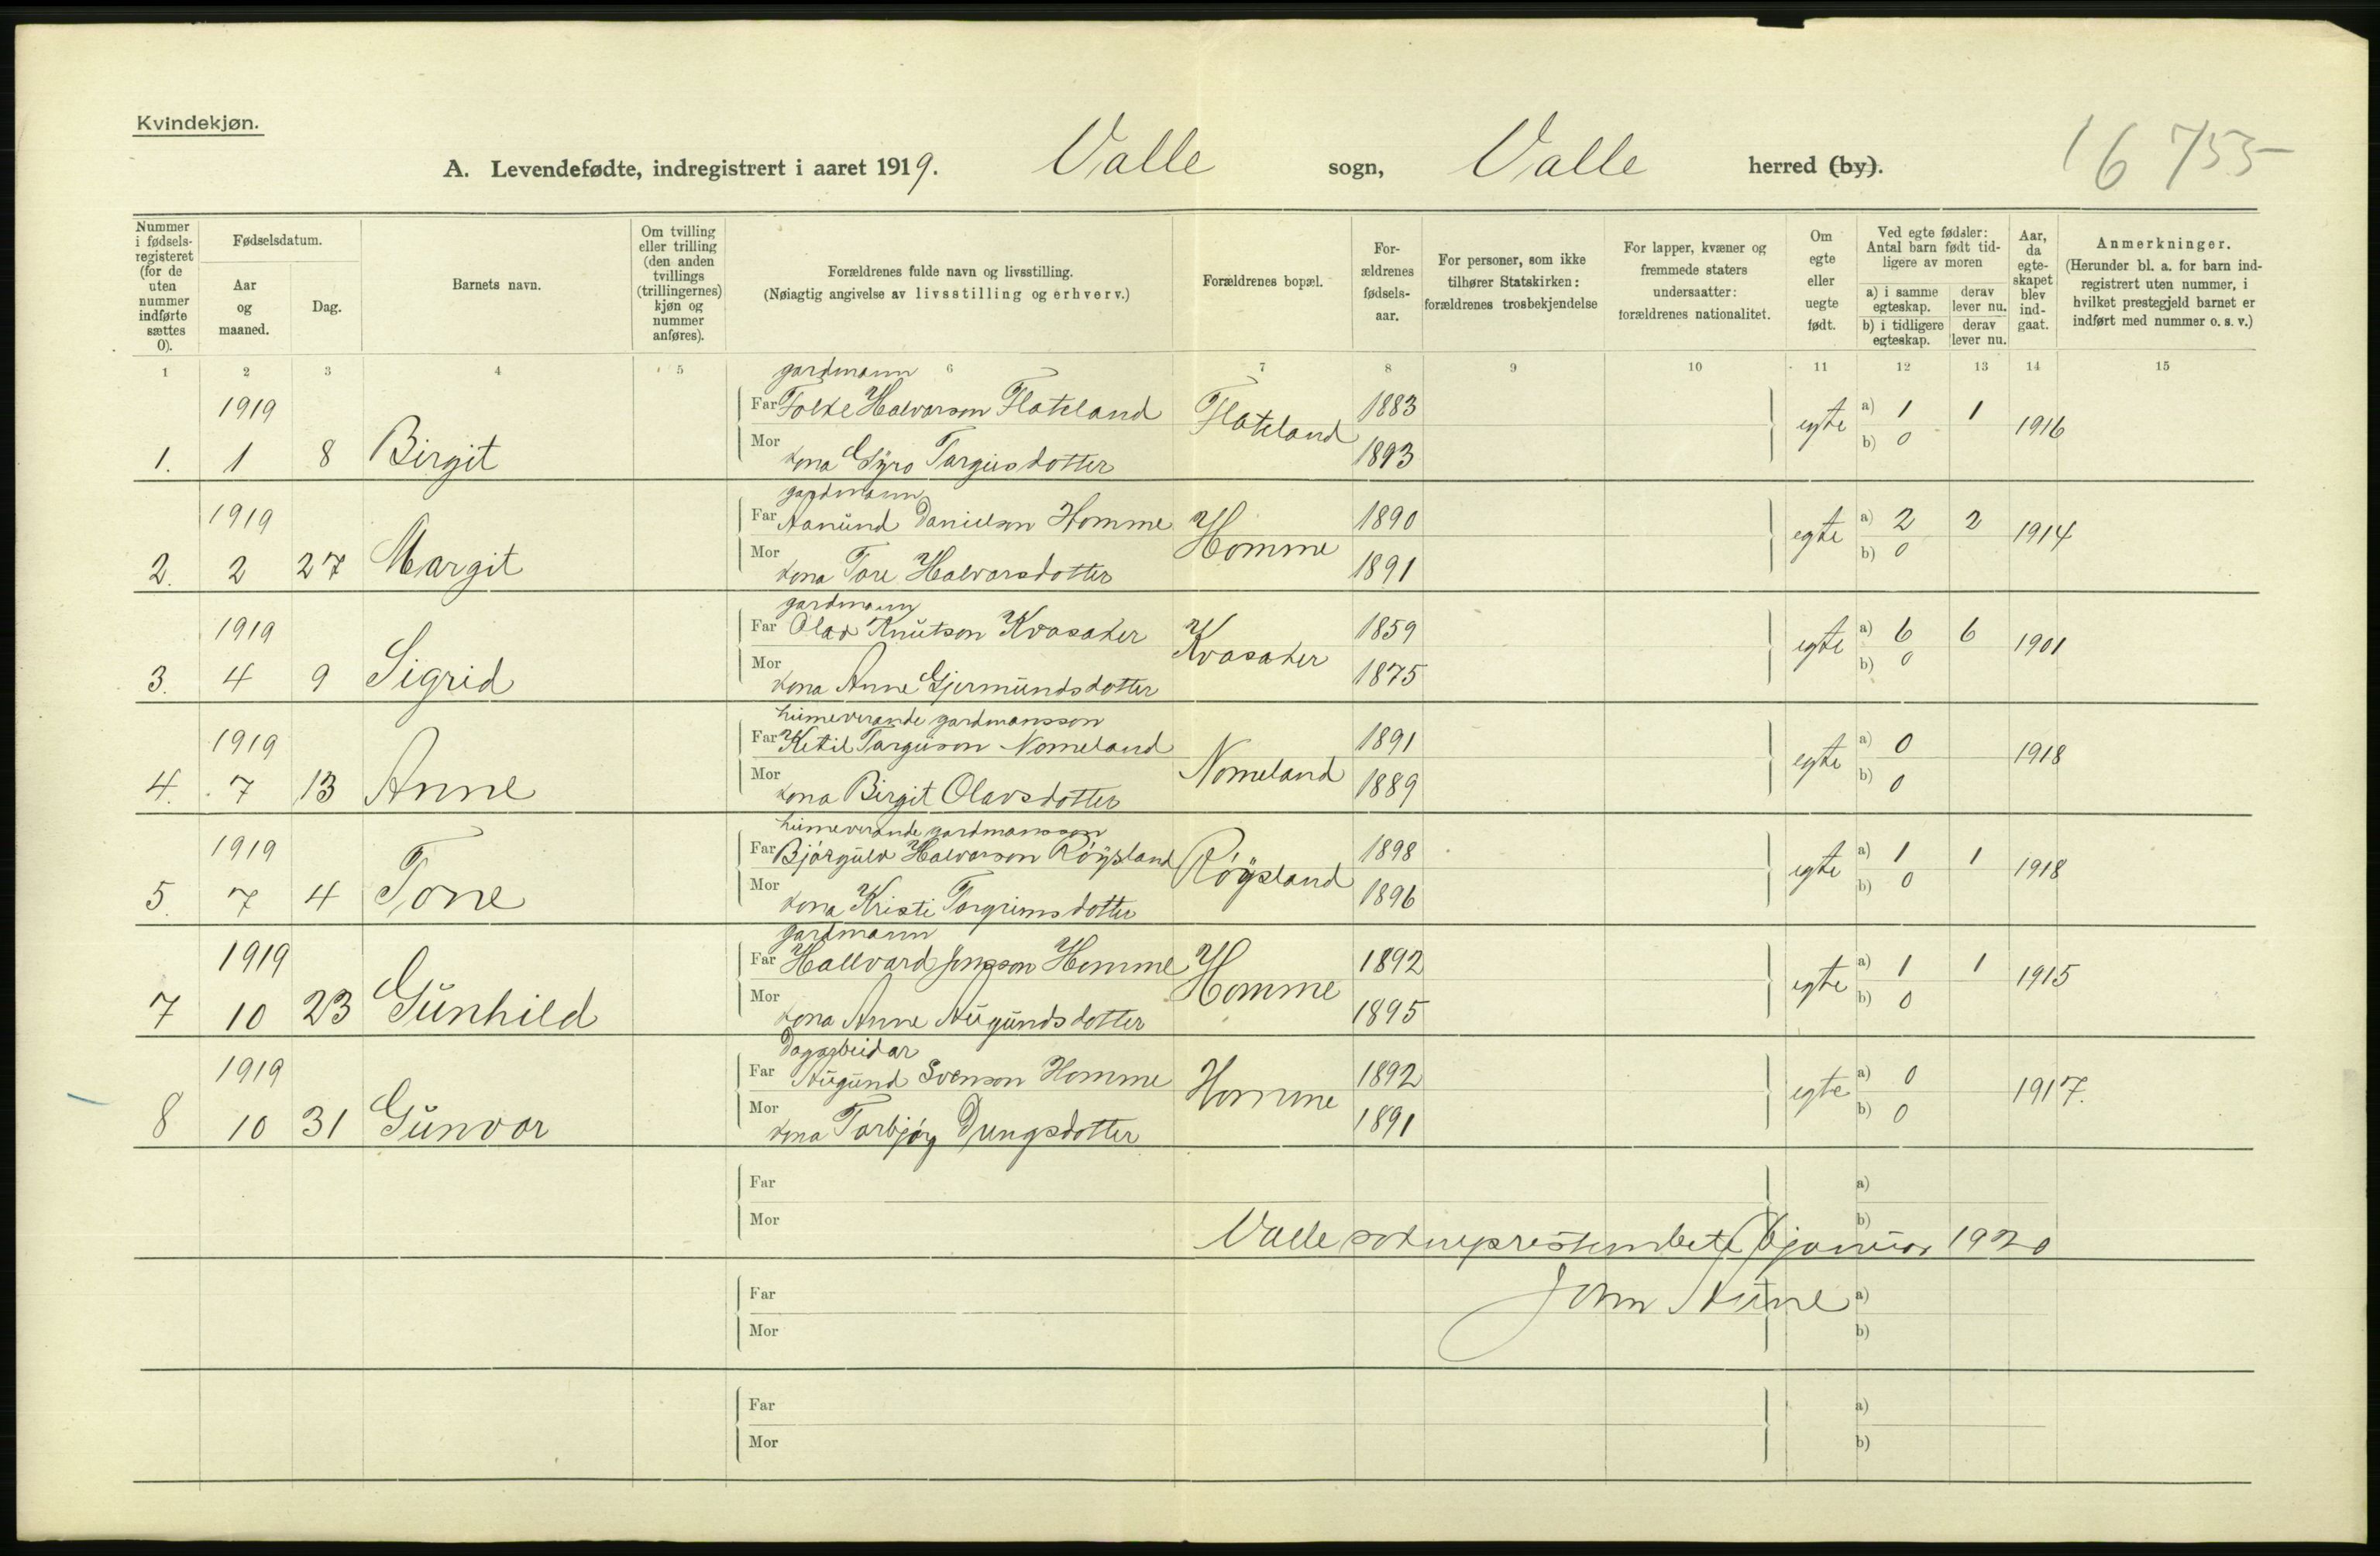 Kvindekjøn.
A. Levendefødte, indregistrert i aaret 1919. Valle sogn, Valle herred (by). 16 755
Nummer i fødsels-registeret (for de uten nummer indførte sættes 0).
Fødselsdatum.
Aar og maaned.
Dag.
Barnets navn.
Om tvilling eller trilling (den anden tvillings (trillingernes) kjøn og nummer anføres).
Forældrenes fulde navn og livsstilling.
(Nøiagtig angivelse av livsstilling og erhverv.)
Forældrenes bopæl.
For-ældrenes fødsels-aar.
For personer, som ikke tilhører Statskirken: forældrenes trosbekjendelse
For lapper, kvæner og fremmede staters undersaatter: forældrenes nationalitet.
Om egte eller uegte født.
Ved egte fødsler: Antal barn født tid-ligere av moren
a) i samme egteskap.
derav lever nu.
b) i tidligere egteskap.
derav lever nu.
Aar, da egte-skapet blev ind-gaat.
Anmerkninger.
(Herunder bl. a. for barn ind-registrert uten nummer, i hvilket prestegjeld barnet er indført med nummer o. s. v.)
1 2 3 4 5 6 7 8 9 10 11 12 13 14 15
gardmann
1919 Far Folke Halvorson Flateland Flateland 1883 egte a) 1 1 1916
1. 1 8 Birgit Mor kona Gyro Targiusdotter 1893 b) 0
gardmann
1919 Far Aanund Danielson Homme Homme 1890 egte a) 2 2 1914
2. 2 27 Margit Mor kona Tore Halvorsdotter 1891 b) 0
gardmann
1919 Far Olav Knutson Kvasaker Kvasaker 1859 egte a) 6 6 1901
3. 4 9 Sigrid Mor kona Anne Gjermundsdotter 1875 b) 0
heimeverande gardmansson
1919 Far Ketil Targuson Nomeland Nomeland 1891 egte a) 0 1918
4. 7 13 Anne Mor kona Birgit Olavsdotter 1889 b) 0
heimeverande gardmansson
1919 Far Bjørgulv Halvorson Røysland Røysland 1898 egte a) 1 1 1918
5. 7 4 Tone Mor kona Kristi Torgrimsdotter 1896 b) 0
gardmann
1919 Far Hallvard Homme Homme 1892 egte a) 1 1 1915
7 10 23 Gunhild Mor kona Anne Augundsdotter 1895 b) 0
Dagarbeidar
1919 Far Augund Svenson Homme Homme 1892 egte a) 0 1917.
8 10 31 Gunvor Mor kona Tarbjørg Dyngsdotter 1891 b) 0
Far a)
Mor b)
Valle sokneprestembete 6 januar 1920
Far a)
John Skeine
Mor b)
Far a)
Mor b)